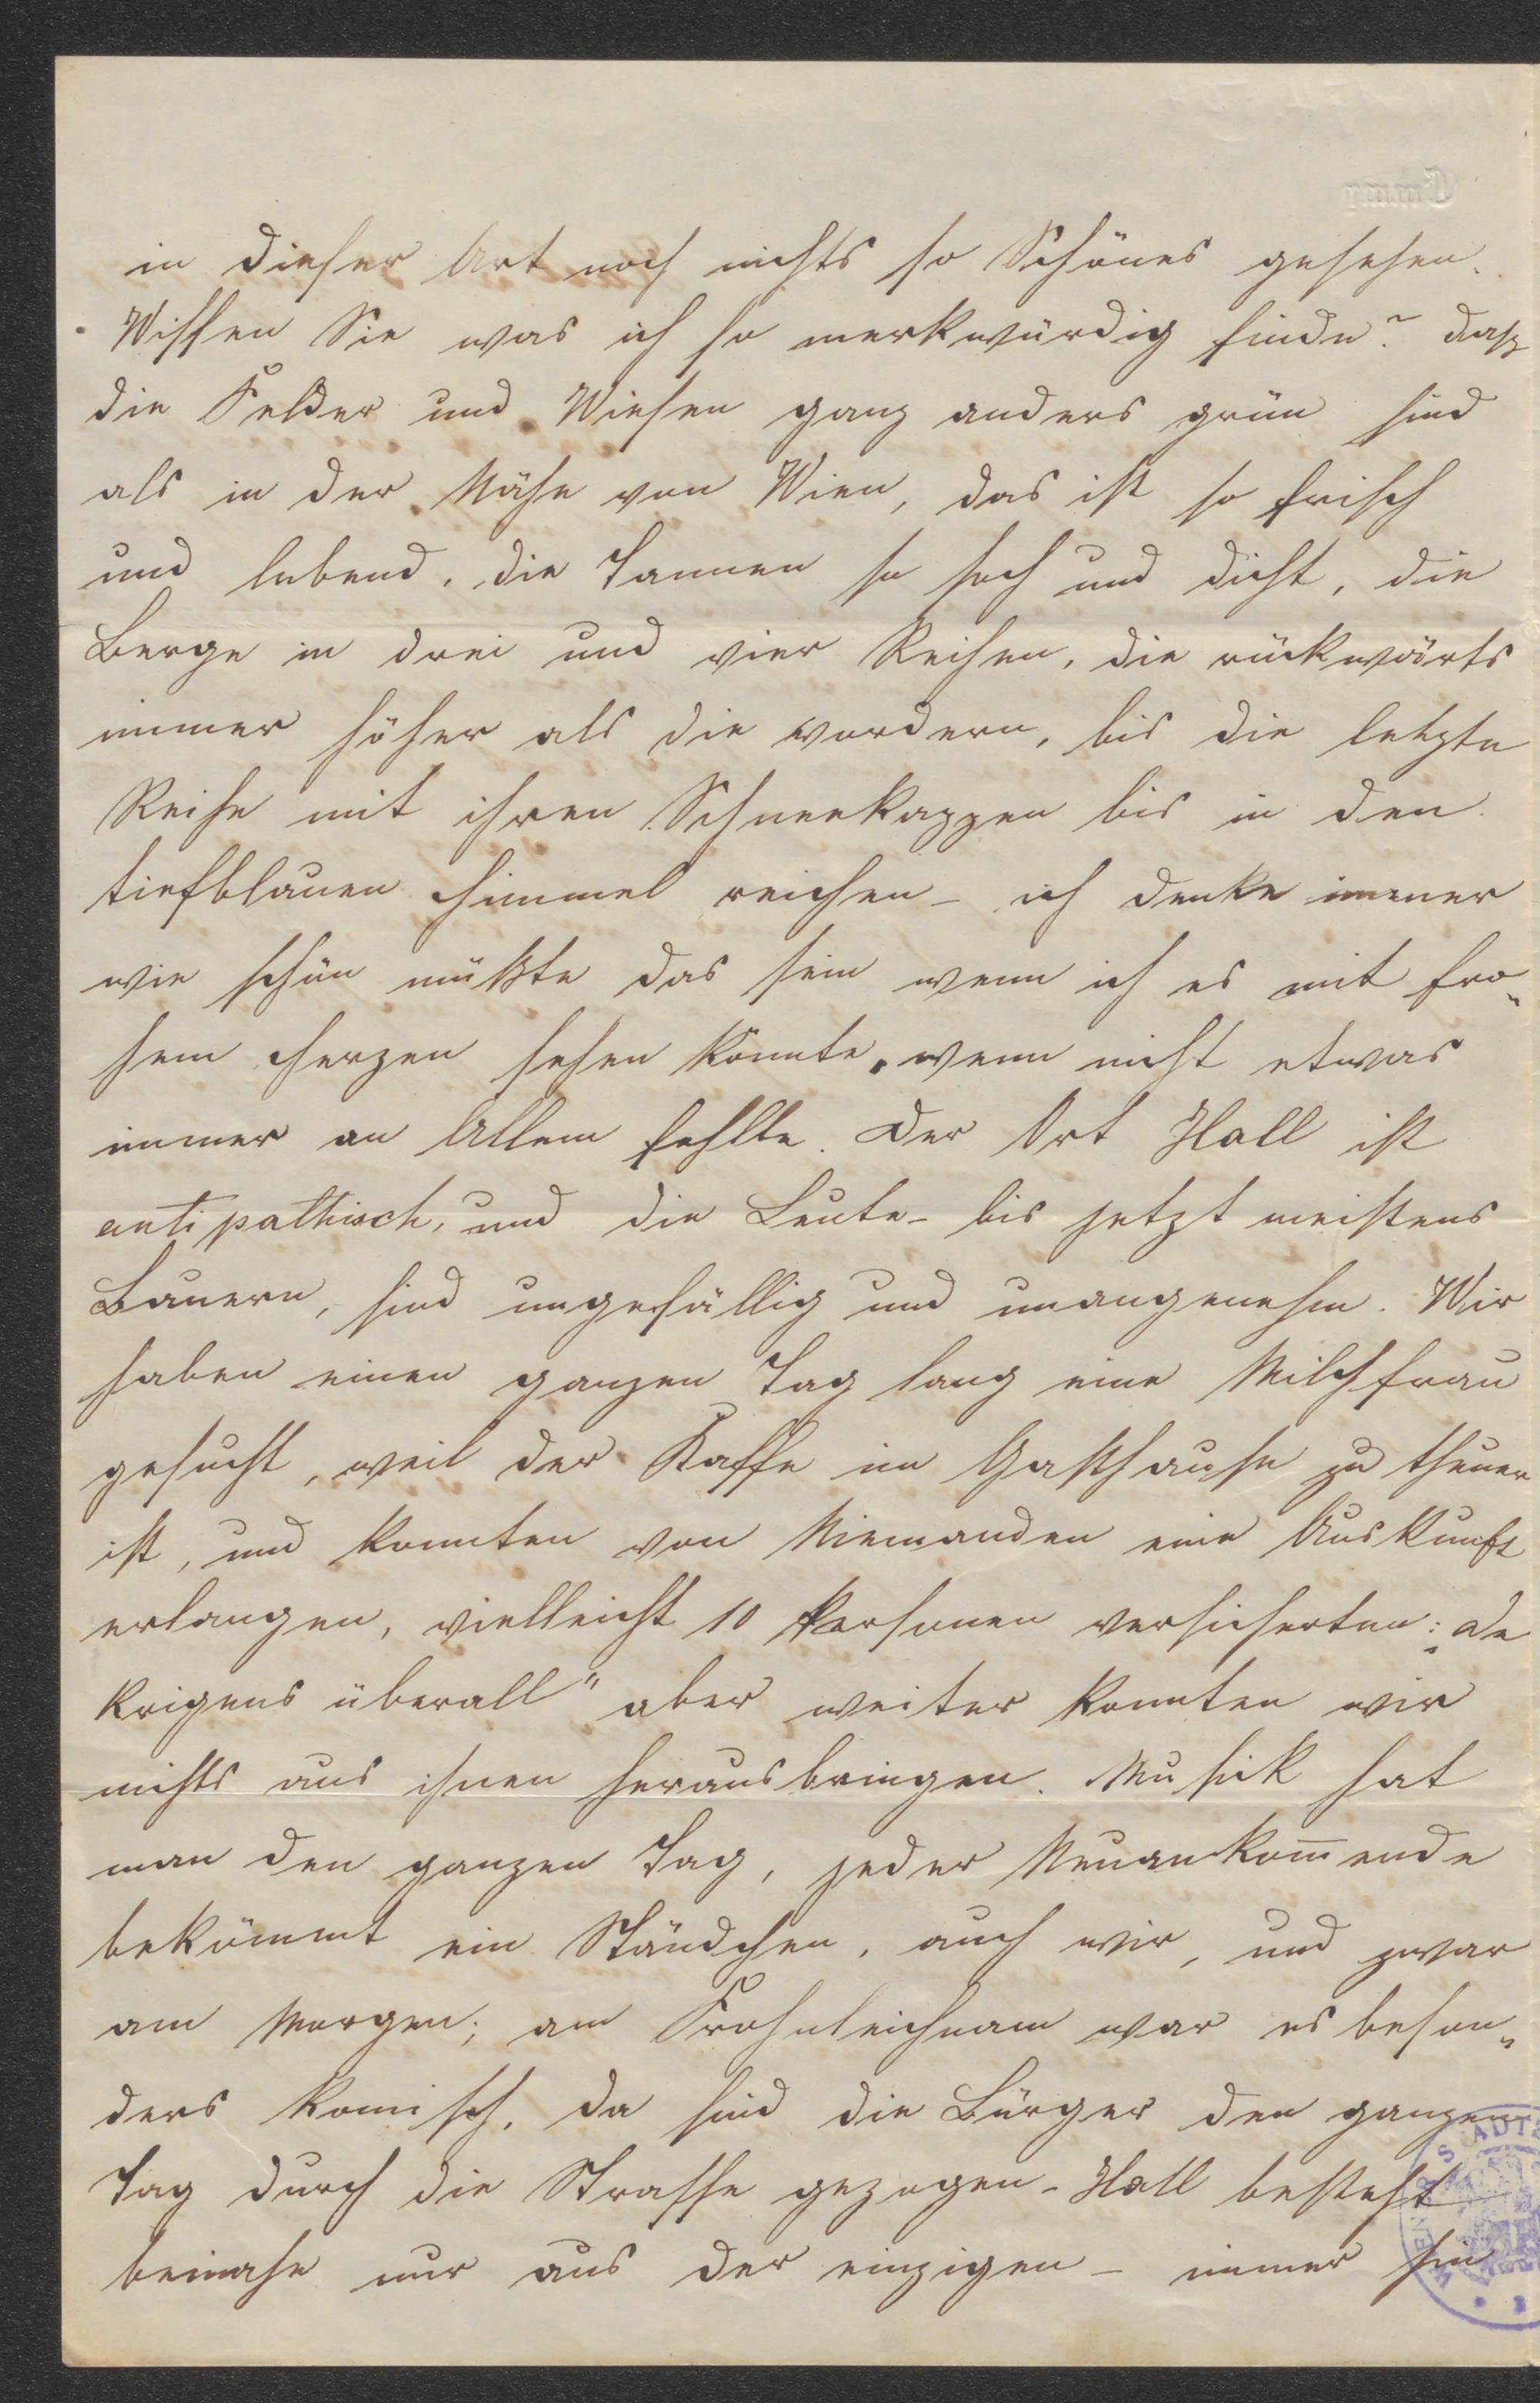 in dieser Art noch nichts so Schönes gesehen.
Wissen Sie was ich so merkwürdig finde? daß
die Felder und Wiesen ganz anders grün sind
als in der Nähe von Wien, das ist so frisch
und lebend, die Tannen so hoch und dicht, die
Berge in drei und vier Reihen, die rückwärts
immer höher als die vordern, bis die letzte
Reihe mit ihren Schneekappen bis in den
tiefblauen Himmel reichen – ich denke immer
wie schön müßte das sein wenn ich es mit fro„
hem Herzen sehen könnte, wenn nicht etwas
immer an Allem fehlte. Der Ort Hall ist
antipathisch, und die Leute – bis jetzt meistens
Bauern, sind ungefällig und unangenehm. Wir
haben einen ganzen Tag lang eine Milchfrau
gesucht, weil der Kaffe im Gasthause zu theuer
ist, und konnten von Niemanden eine Auskunft
erlangen, vielleicht 10 Personen versicherten: „de
krigens überall" aber weiter konnten wir
nichts aus ihnen herausbringen. Musik hat
man den ganzen Tag, jeder Neuankom̅ende
bekömmt ein Ständchen, auch wir, und zwar
am Morgen; am Frohnleichnam war es beson„
ders komisch, da sind die Bürger den ganzen
Tag durch die Strasse gezogen – Hall besteht
beinahe nur aus der einzigen – immer hin